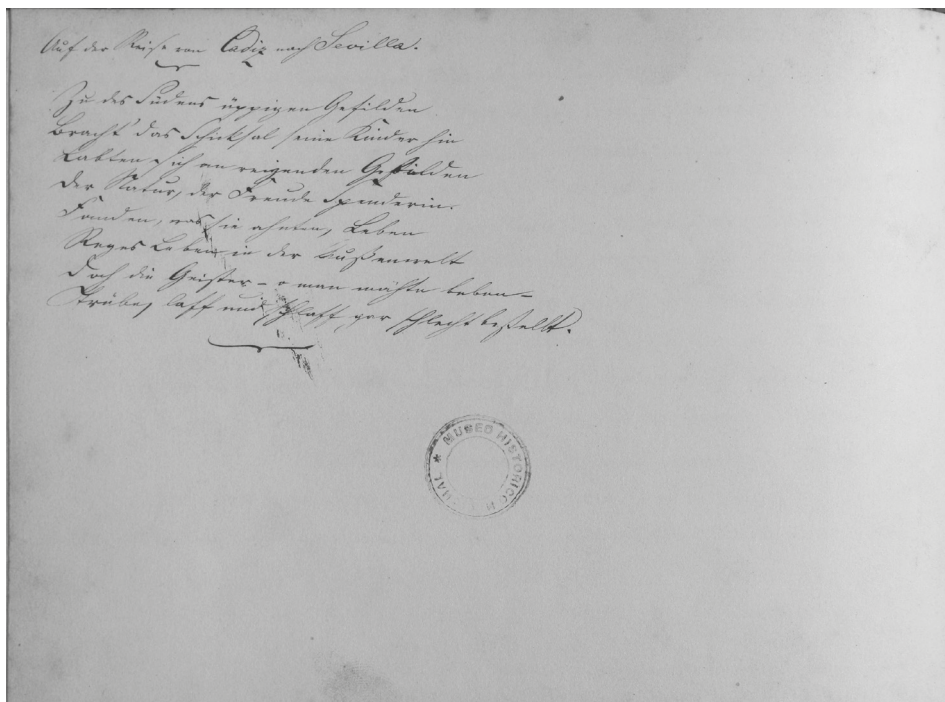 Auf der Reise von Cadiz nach Sevilla.
Zu des Südens üppigen Gefilden
Bracht' das Schicksal seine Kinder hin
Labten sich an reizenden Gebilden
Der Natur, der Freude Spenderin.
Fanden, was sie ahnten, Leben
Reges Leben in der Außenwelt
Doch die Geister – o man möchte beben –
Trübe, laff und schlaff gar schlecht bestellt.
MUSEO HISTORICO N NAL